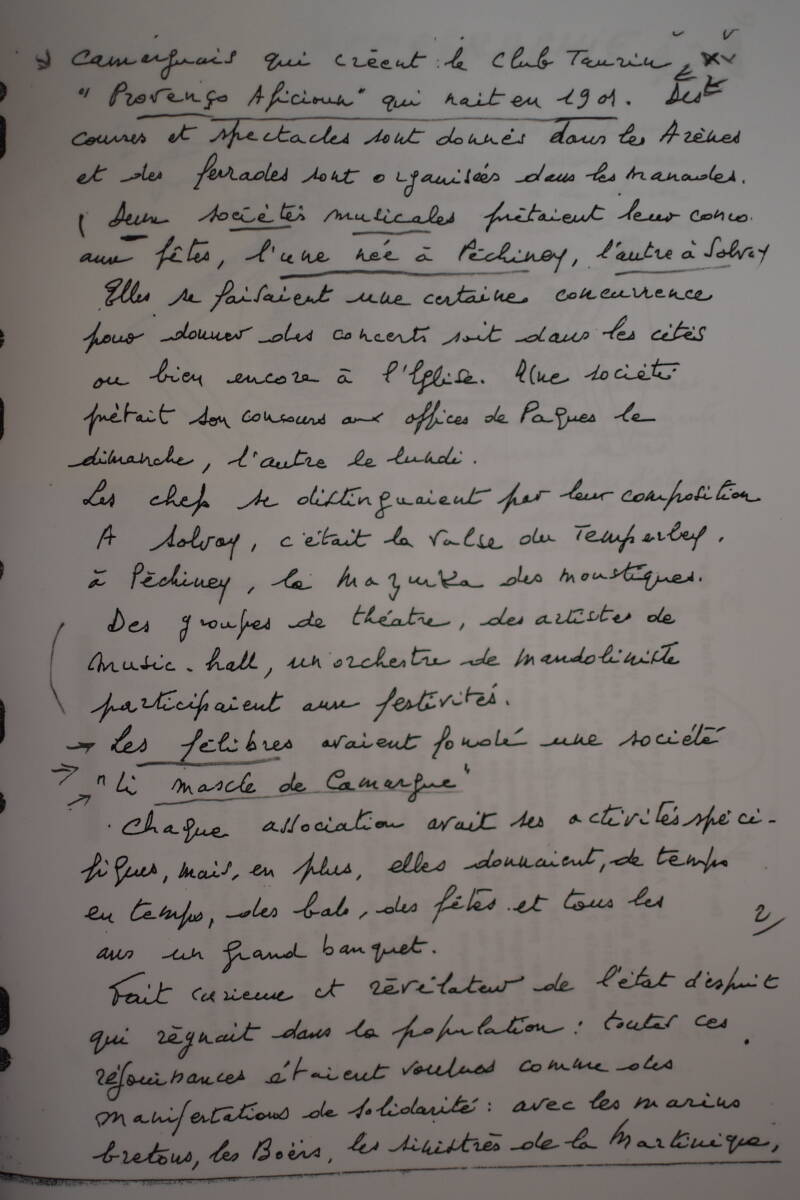 Camarguais qui créent le Club Taurin,
"Provenço Aficioun" qui nait en 1901. Des
courses et spectacles sont donnés dans les Arènes
et des ferrades sont organisées dans les manades.
( Deux sociétés musicales prêtaient leur conco.
aux fêtes, l'une née à Péchiney, l'autre à Solvay
Elles se faisaient une certaine concurrence
pour donner des concerts soit dans les cités
ou bien encore à l'Eglise. Une société
prêtait son concours aux offices de Paques le
dimanche, l'autre le lundi.
Les chefs se distinguaient par leur composition
A Solvay, c'était la valse du Temperley,
à Péchiney, la Mazurka des moustiques.
Des groupes de théatre, des artistes de
music-hall, un orchestre de mandoliniste
participaient aux festivités.
→ Les félibres avaient fondé une société
"Li mascle de Camargue"
Chaque association avait ses activités spéci-
fiques, mais, en plus, elles donnaient, de temps
en temps, des bals, des fêtes et tous les
ans un grand banquet.
2/
Fait curieux et révélateur de l'état d'esprit
qui règnait dans la population : toutes ces
réjouissances étaient voulues comme des
manifestations de solidarité : avec les marins
bretons, les Boërs, les sinistrés de la Martinique,